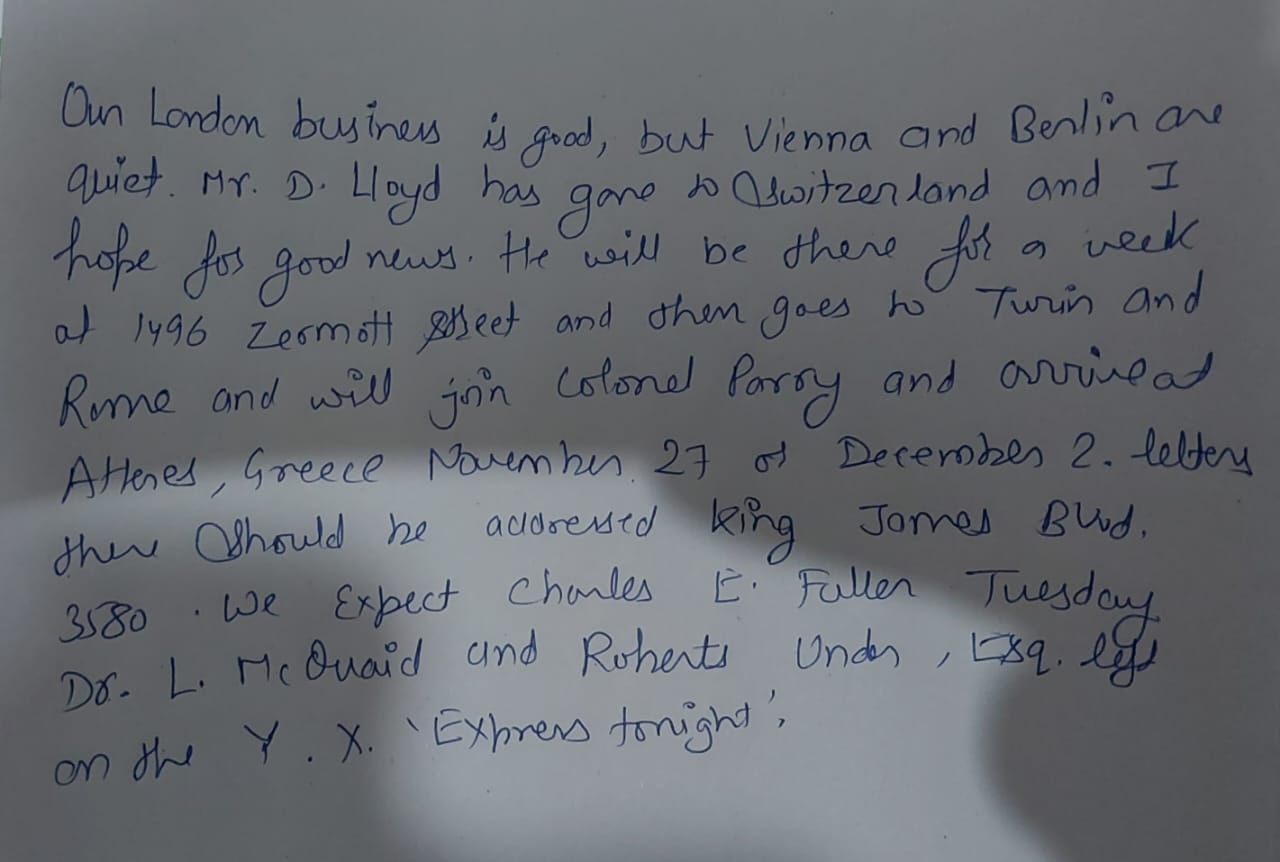 Our London business is good, but Vienna and Berlin are
quiet. Mr. D. Lloyd has gone to Switzerland and I
hope for good news. He will be there for a week
at 1496 Zermott street and then goes to Turin and
Rome and will join Colonel Parry and arrive at
Athenes, Greece November 27 or December 2. letters
there Should be addressed King James Blvd.
3580. We Expect Charles E. Fuller Tuesday
Dr. L. McQuaid and Roberts Under, Esq. left
on the Y. X. 'Express tonight'.